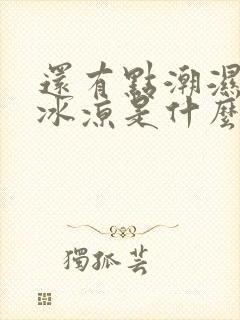 還有點潮濕
冰涼是什麼
獨孤芸